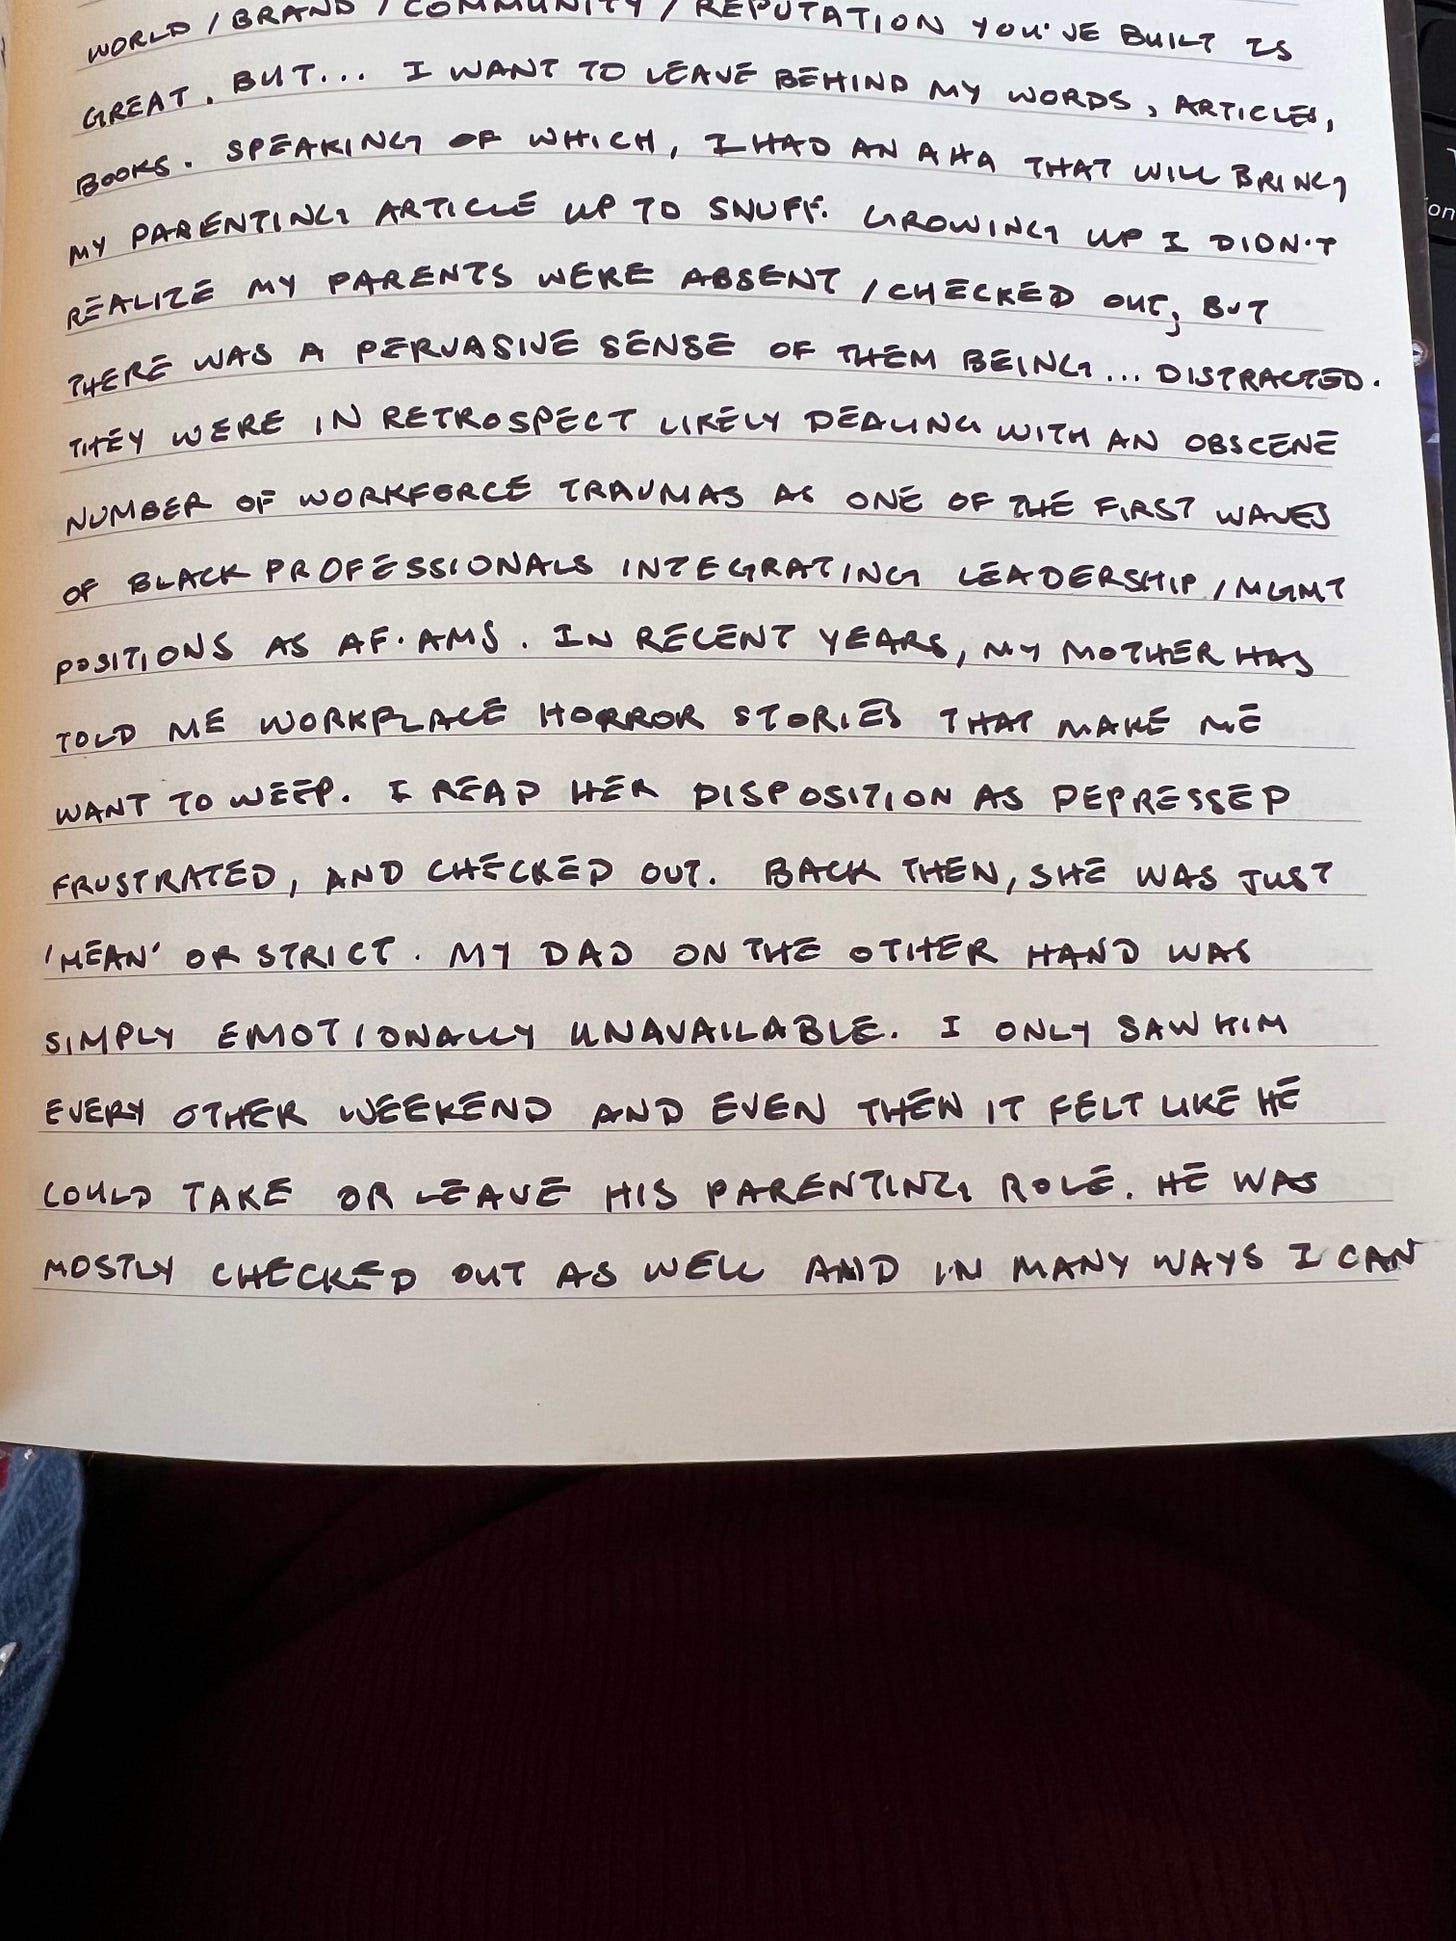 WORLD / BRAND / COMMUNITY / REPUTATION YOU'VE BUILT IS
GREAT. BUT... I WANT TO LEAVE BEHIND MY WORDS, ARTICLES,
BOOKS. SPEAKING OF WHICH, I HAD AN AHA THAT WILL BRING
MY PARENTING ARTICLE UP TO SNUFF. GROWING UP I DIDN'T
REALIZE MY PARENTS WERE ABSENT / CHECKED OUT; BUT
THERE WAS A PERVASIVE SENSE OF THEM BEING... DISTRACTED.
THEY WERE IN RETROSPECT LIKELY DEALING WITH AN OBSCENE
NUMBER OF WORKFORCE TRAUMAS AS ONE OF THE FIRST WAVES
OF BLACK PROFESSIONALS INTEGRATING LEADERSHIP / MGMT
POSITIONS AS AF. AMS. IN RECENT YEARS, MY MOTHER HAS
TOLD ME WORKPLACE HORROR STORIES THAT MAKE ME
WANT TO WEEP. I READ HER DISPOSITION AS DEPRESSED
FRUSTRATED, AND CHECKED OUT. BACK THEN, SHE WAS JUST
'MEAN' OR STRICT. MY DAD ON THE OTHER HAND WAS
SIMPLY EMOTIONALLY UNAVAILABLE. I ONLY SAW HIM
EVERY OTHER WEEKEND AND EVEN THEN IT FELT LIKE HE
COULD TAKE OR LEAVE HIS PARENTING ROLE. HE WAS
MOSTLY CHECKED OUT AS WELL AND IN MANY WAYS I CAN